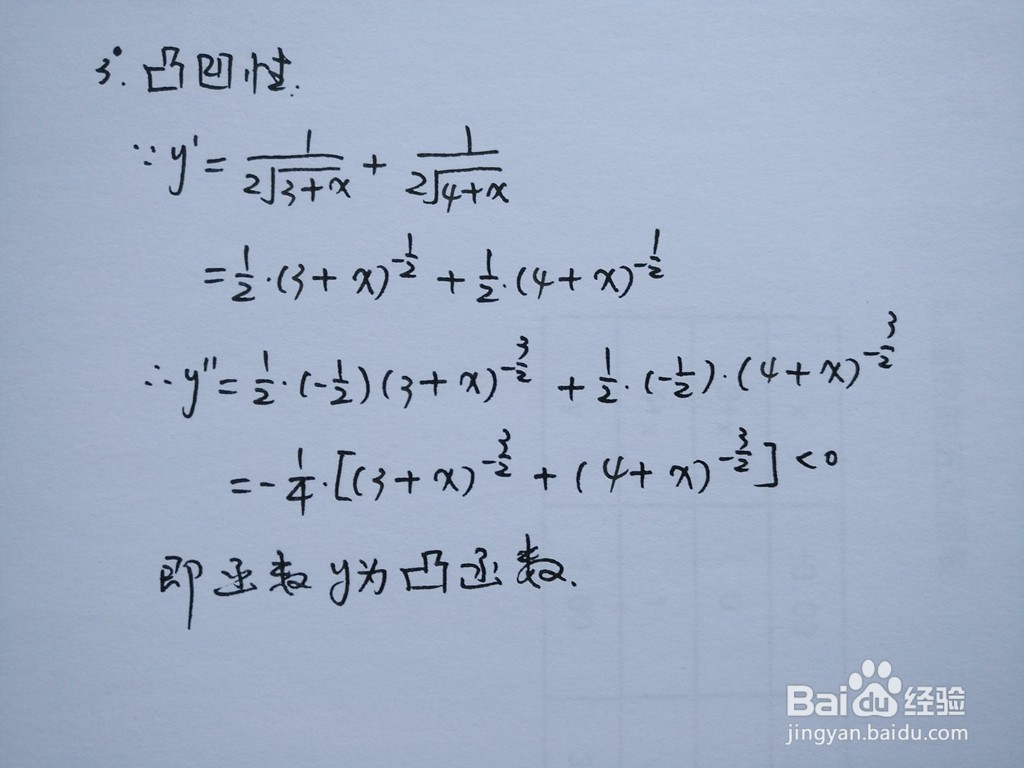 3°. 凸凹性.
∵ y' = 1/(2√(3+x)) + 1/(2√(4+x))
= 1/2·(3+x)^(-1/2) + 1/2·(4+x)^(-1/2)
∴ y'' = 1/2·(-1/2)(3+x)^(-3/2) + 1/2·(-1/2)·(4+x)^(-3/2)
= -1/4·[(3+x)^(-3/2) + (4+x)^(-3/2)] <0
即函数y为凸函数.
Baidu经验
jingyan.baidu.com